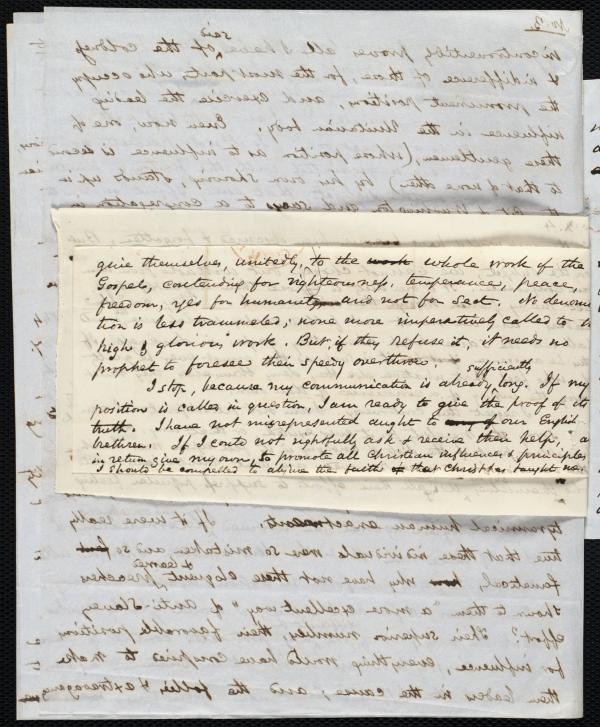 No. 3.
incontrovertibly proves all I have said of the coldness
& indifference of those for the most part, who occupy
the prominent position, and exercise the leading
influence in the Unitarian body. Even now, one of
these gentlemen, (whose position as to influence is second
to that of none other) by his own showing, stands up in
Washington and says to a congregation
give themselves, unitedly, to the work whole work of the
Gospel, contending for righteousness, temperance, peace,
freedom, yes for humanity and not for Sect. No denomi
tion is less trammeled; none more imperatively called to
high & glorious work. But if they refuse it, it needs no
prophet to foresee their speedy overthrow.
I stop, because my communication is already sufficiently long. If my
position is called in question, I am ready to give the proof of its
truth. I have not misrepresented aught to any of our English
brethren. If I could not rightfully ask & receive their help,
in return give my own, to promote all Christian influences & principles
I should be compelled to abjure the faith that Christ has taught me.
tyrannical human enactments. If it were really
true that those individuals were so mistaken and so
fanatical, why have not these eloquent & learned preachers
shown to them "a more excellent way" of Anti-Slavery
effort? Their superior number, their favorable position
for influence, everything would have conspired to make
them leaders in the cause; and the follies & extravagancies